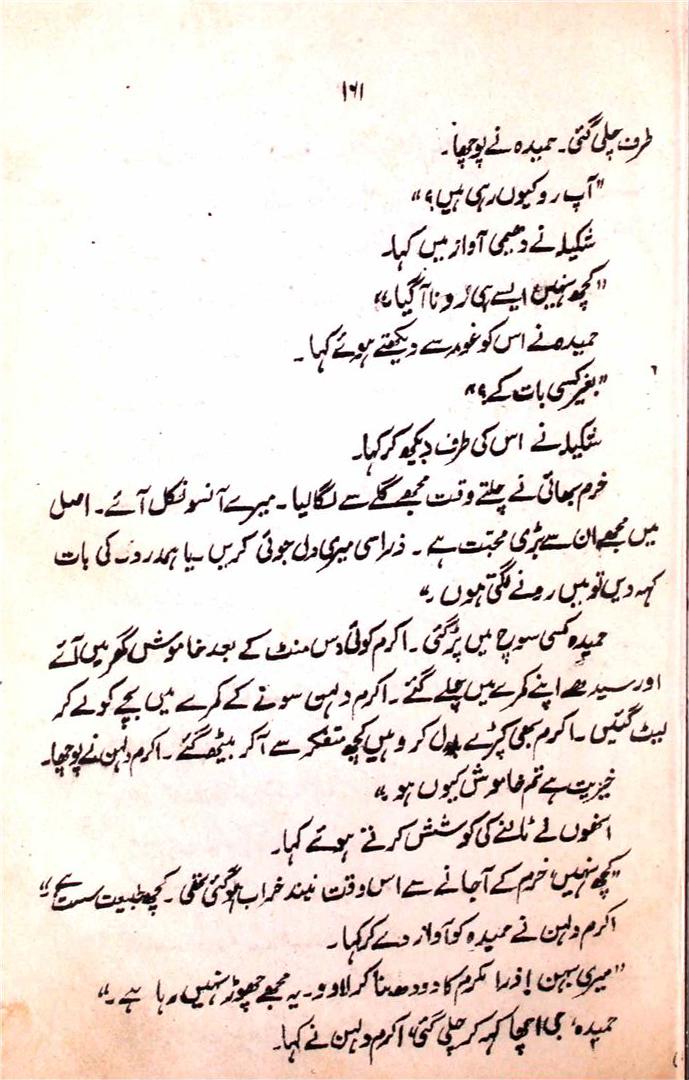 ۱۶۱
طرف چلی گئی۔ حمیدہ نے پوچھا۔
"آپ رو کیوں رہی ہیں؟"
شکیلہ نے دھیمی آواز میں کہا۔
"کچھ نہیں ایسے ہی رونا آگیا۔"
حمیدہ نے اس کو غور سے دیکھتے ہوئے کہا۔
"بغیر کسی بات کے؟"
شکیلہ نے اس کی طرف دیکھ کر کہا۔
خرم بھائی نے چلتے وقت مجھے گلے سے لگالیا۔ میرے آنسو نکل آئے۔ اصل
میں مجھے ان سے بڑی محبت ہے۔ ذرا سی میری دل جوئی کریں یا ہمدردی کی بات
کہہ دیں تو میں رونے لگتی ہوں۔"
حمیدہ کسی سوچ میں پڑ گئی۔ اکرم کوئی دس منٹ کے بعد خاموش گھر میں آئے
اور سیدھے اپنے کمرے میں چلے گئے۔ اکرم دلہن سونے کے کمرے میں بچے کو لے کر
لیٹ گئیں۔ اکرم بھی کپڑے بدل کر وہیں کچھ متفکر سے آکر بیٹھ گئے۔ اکرم دلہن نے پوچھا۔
خیریت ہے تم خاموش کیوں ہو۔"
انھوں نے ٹالنے کی کوشش کرتے ہوئے کہا۔
"کچھ نہیں، خرم کے آجانے سے اس وقت نیند خراب ہوگئی تھی۔ کچھ طبیعت سست ہے۔"
اکرم دلہن نے حمیدہ کو آواز دے کر کہا۔
"میری بہن! ذرا مکرم کا دودھ بنا کر لا دو۔ یہ مجھے چھوڑ نہیں رہا ہے۔"
حمیدہ، جی اچھا کہہ کر چلی گئی، اکرم دلہن نے کہا۔